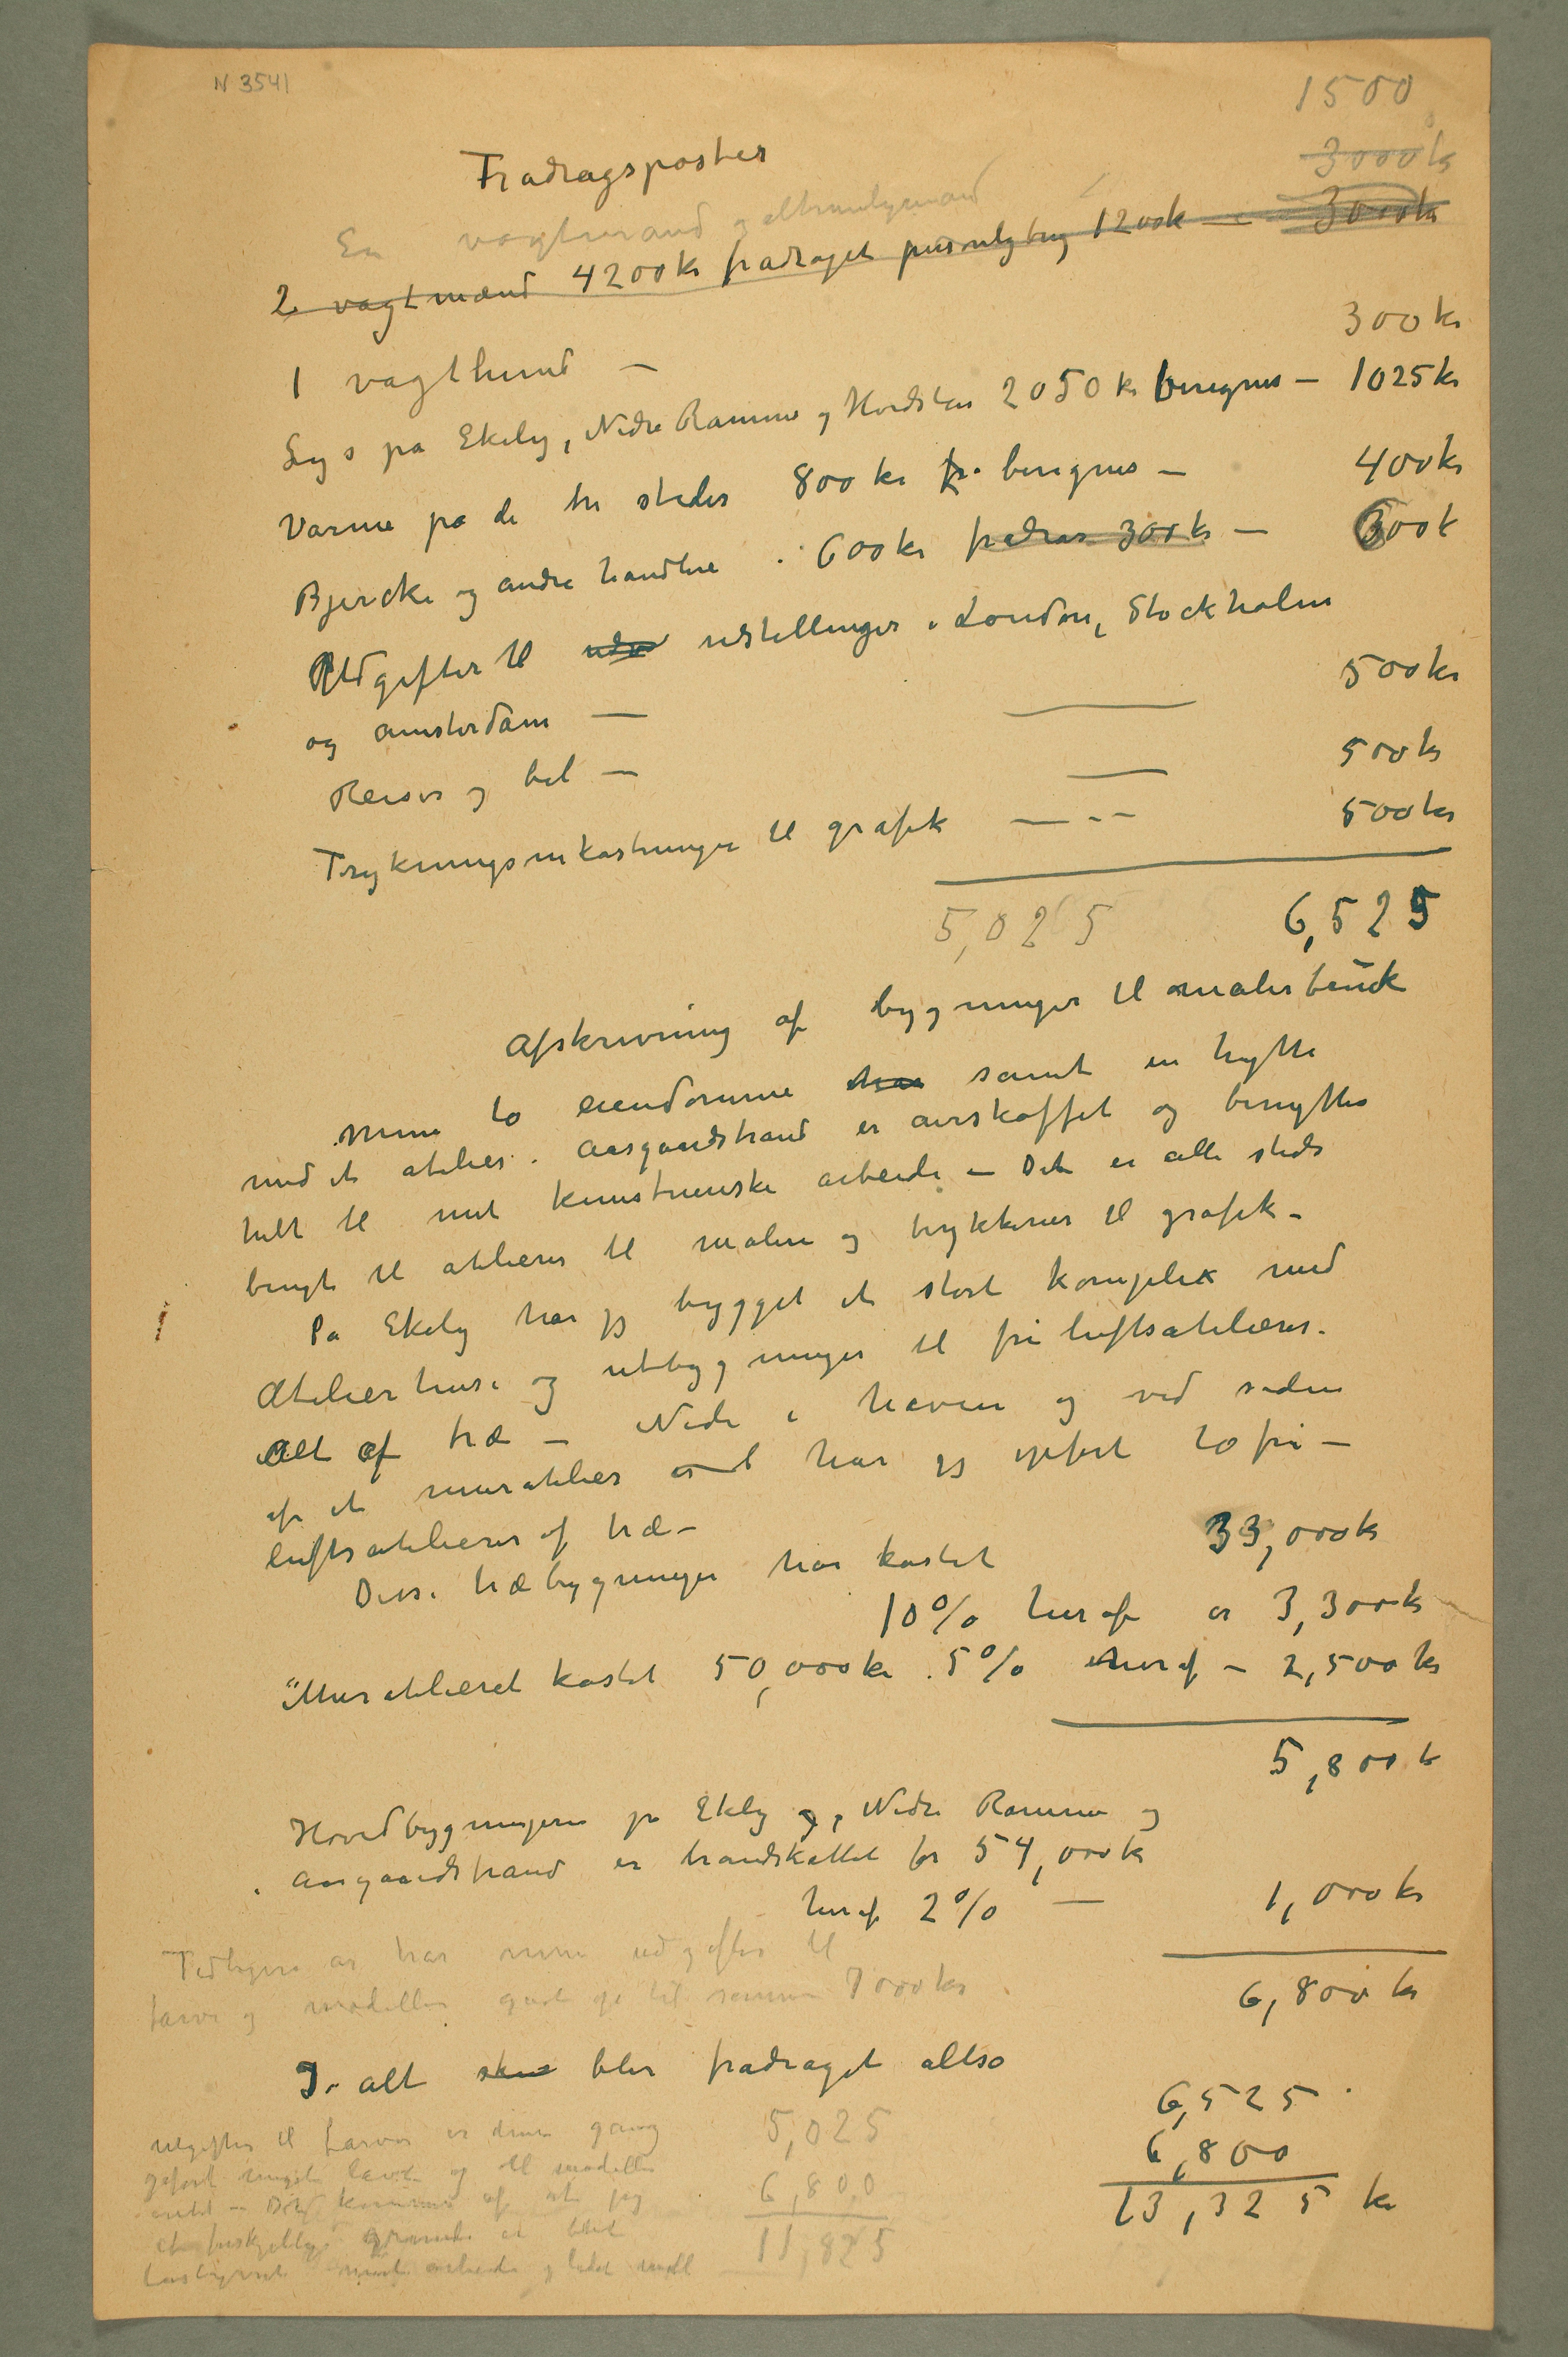 N 3541
1500
Fradragsposter
3000 kr
En vagtmand og altmuligmand
2 vagtmænd 4200 kr fradraget personlig brug 1200 k — 3000 kr
1 vagthund — 300 kr
Lys på Ekely, Nedre Ramme og Hvidsten 2050 kr beregnes — 1025 kr
Varme på de tre steder 800 kr beregnes — 400 kr
Bjercke og andre handlere 600 kr fradrar 300 kr — 300 k
Udgifter til udstillinger i London, Stockholm
og Amsterdam — 500 kr
Reiser og bil — 500 kr
Trykningsomkostninger til grafik — 500 kr
5,025 6,525
Afskrivning af bygninger til malerbruk
Mine to eiendomme har samt en hytte
med et atelier i Aasgaardstrand er anskaffet og benyttes
helt til mit kunstneriske arbeide — Det er alle steder
brugt til atelierer til maleri og trykkerier til grafik —
På Ekely har jeg bygget et stort komplex med
Atelierhuse og utbygninger til friluftsatelierer.
Alt af træ — Nede i haven og ved siden
af et muratelier har jeg opført to fri-
luftsatelierer af træ —
Disse træbygninger har kostet 33,000 k
10% heraf er 3,300 kr
Muratelieret kostet 50,000 kr 5% heraf — 2,500 kr
5,800 k
Hovedbygningerne på Ekely og, Nedre Ramme og
i Aasgaardstrand er brandskattet for 54,000 k
heraf 2% — 1,000 kr
Tidligere år har mine udgifter til
farver og modeller gået op til sammen 7000 kr
6,800 kr
I alt blir fradraget altså
6,525
6,800
13,325 kr
utgifter til farver er denne gang
og til modeller
at jeg
arbeide
5,025
6,800
11,825